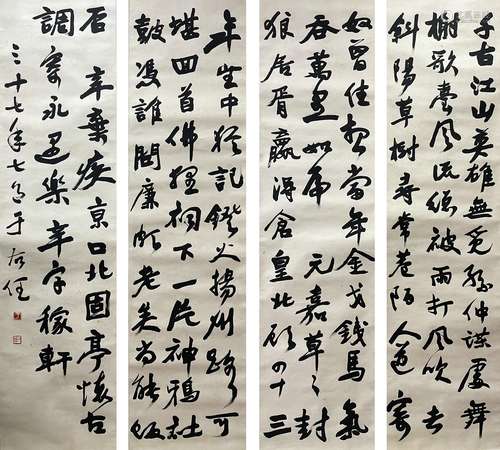 千古江山英雄無覓孫仲謀處舞
榭歌臺風流總被雨打風吹去
斜陽草樹尋常巷陌人道寄
奴曾住想當年金戈鐵馬氣
吞萬里如虎元嘉草々封
狼居胥贏得倉皇北顧四十三
年望中猶記鐙火揚州路可
堪回首佛狸祠下一片神鴉社
鼓憑誰問廉頗老矣尚能飯
否 辛棄疾京口北固亭懷古
調寄永遇樂 辛字稼軒
三十七年七月于右任